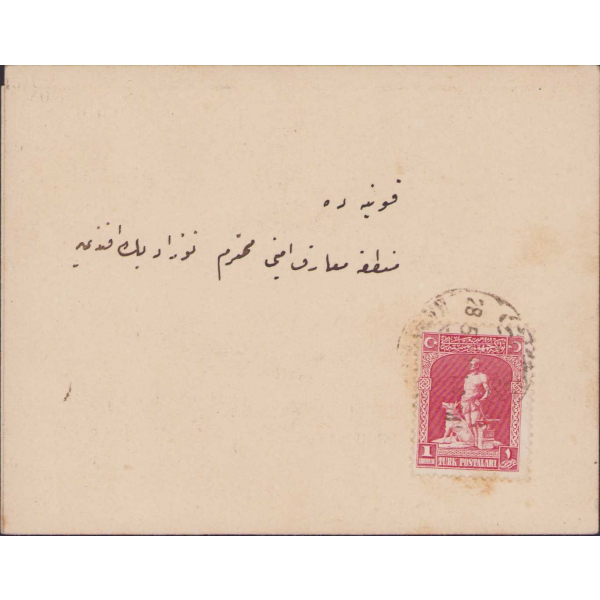 قونیه ده
منطقه معارف امینی محترم نوزاد بك افندی یه
28 5
1 ١
TÜRK POSTALARI